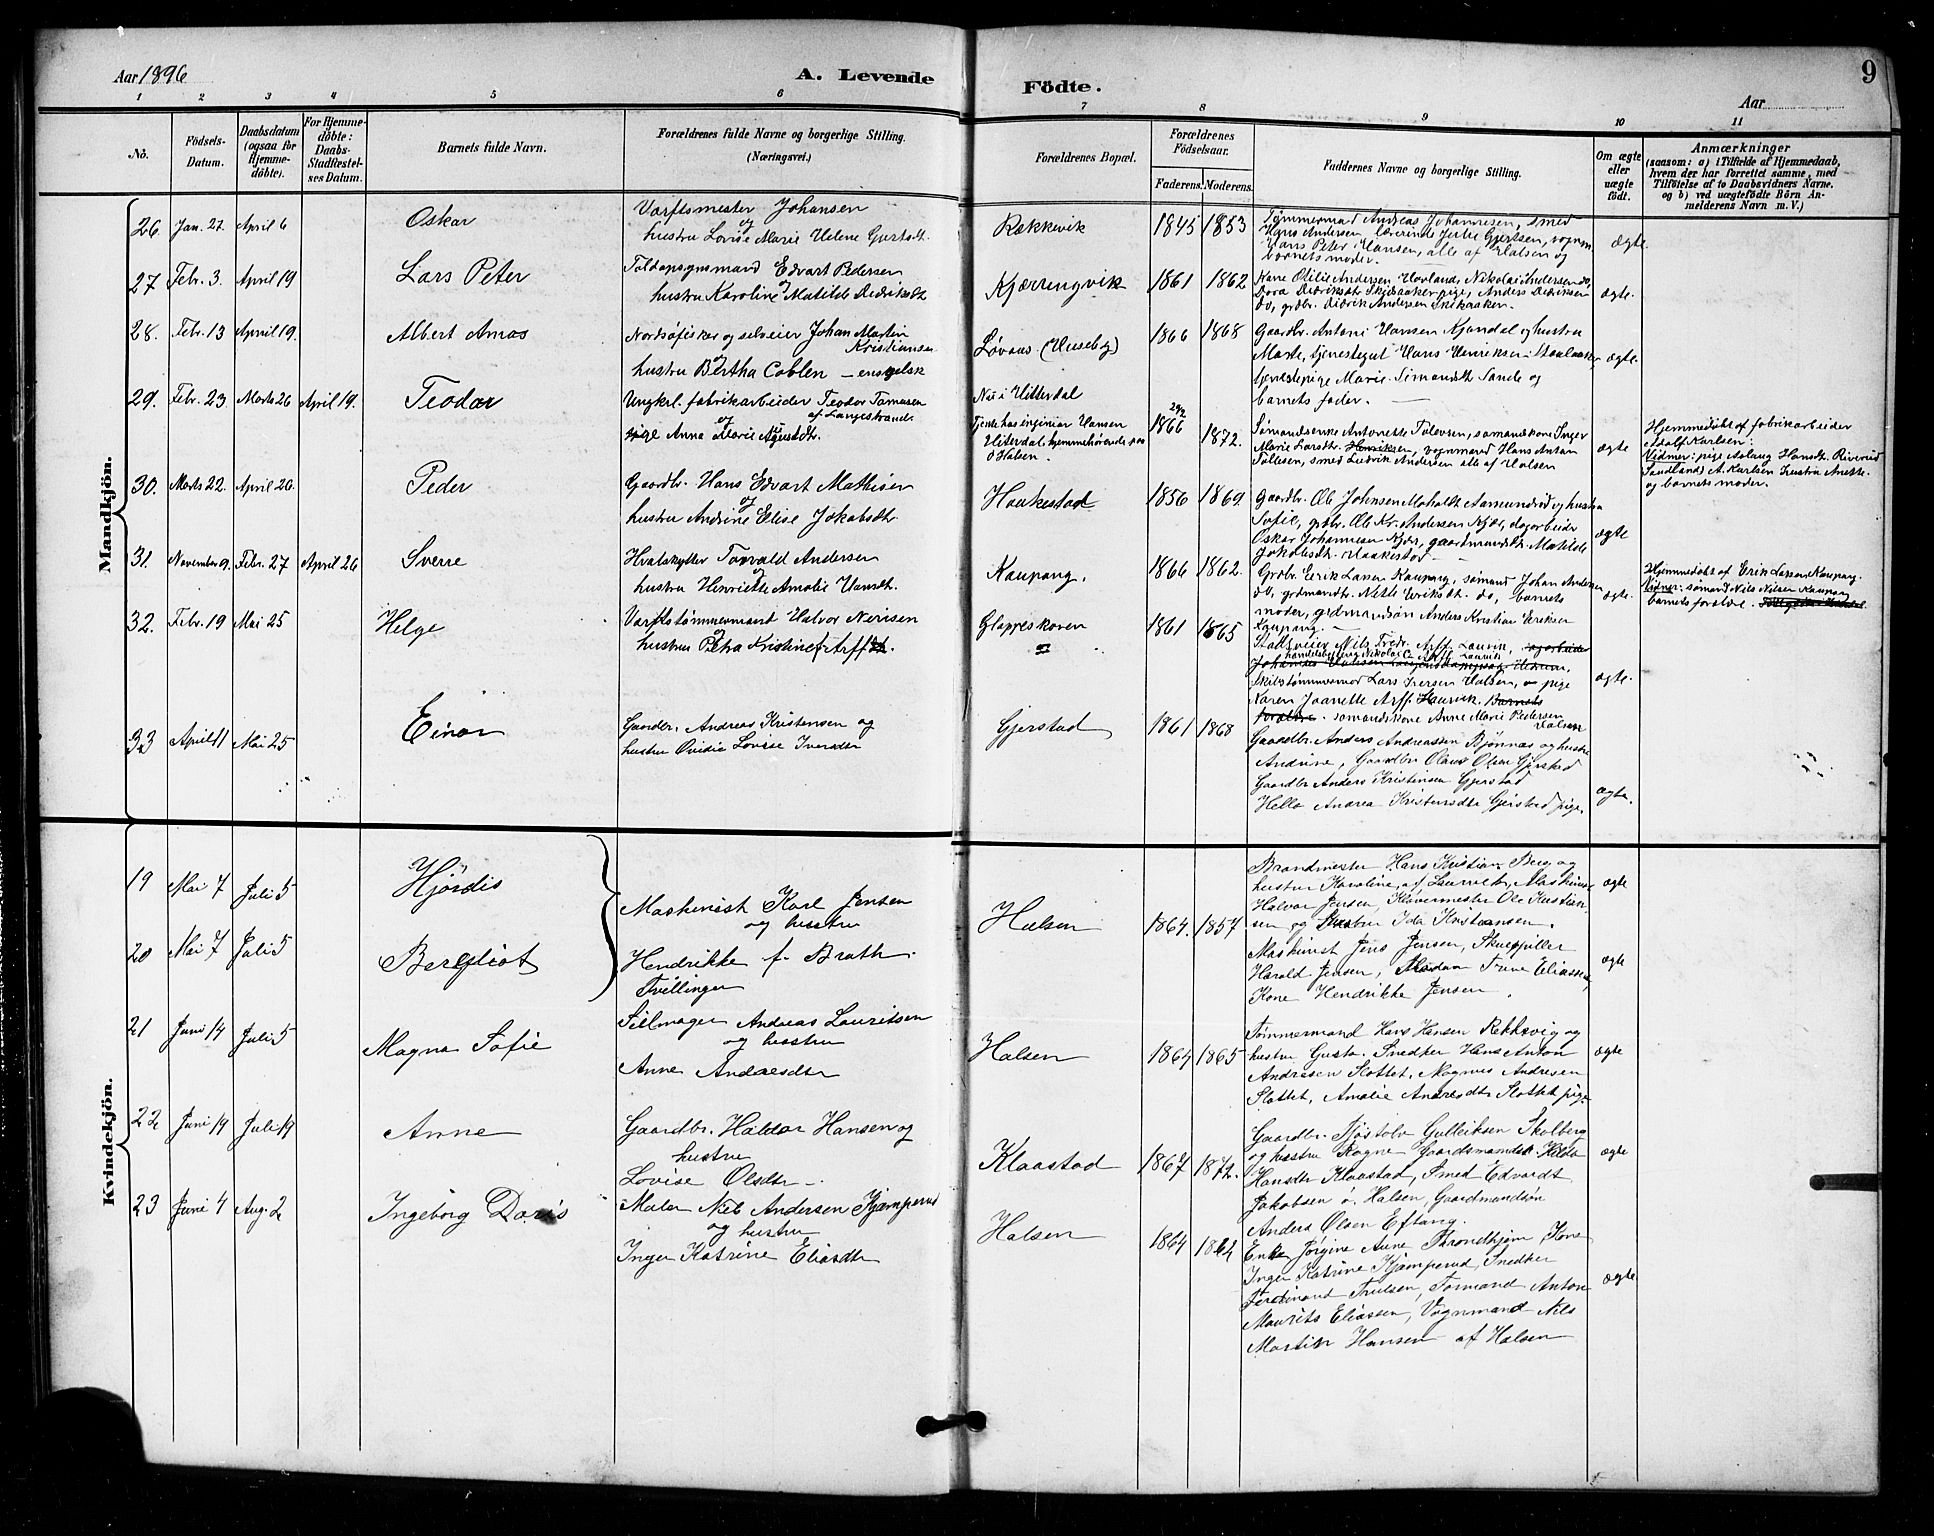 Aar 1896
A. Levende
Födte.
9
Aar
1 2 3 4 5 6 7 8 9 10 11
No.
Födsels-Datum.
Daabsdatum (ogsaa for Hjemme-döbte).
For Hjemme-döbte: Daabs-Stadfæstel-ses Datum.
Barnets fulde Navn.
Forældrenes fulde Navne og borgerlige Stilling.
(Næringsvei.)
Forældrenes Bopæl.
Forældrenes Födselsaar.
Faderens. Moderens.
Faddernes Navne og borgerlige Stilling.
Om ægte eller uægte födt.
Anmærkninger
(saasom: a) i Tilfælde af Hjemmedaab, hvem der har forrettet samme, med Tilföielse af to Daabsvidners Navne. og b) ved uægtefödte Börn An-melderens Navn m. V.)
Mandkjön.
26. Jan. 27. April 6 Oskar
Varftsmester Johansen
og
hustru Lovise Marie Helene
Rækkevik 1845 1853
Tømmermand Andreas Johannesen, smed
Hans Andersen, lærerinde Gjertsen, vognm.
Hans Peter Hansen, alle af Halsen og
barnets moder.
ægte
27 Febr. 3. April 19 Lars Peter
Toldopsynsmand Edvart Pedersen
og
hustru Karoline Matilde Didriksdt
Kjærringvik 1861 1862
Kone Otilie Andersen Hovland, Nikolai Andersen do,
Dora Didriksdt Skibaaker pige, Anders Didriksen
do, grdbr. Didrik Andersen Skibaaker.
ægte.
28. Febr. 13 April 19. Albert Amos
Nordsøfisker og selveier Johan Martin
Kristiansen
og
hustru Bertha Coblen – engelsk
Løvaas (Huseby) 1866 1868
Gaardbr. Anton Hansen Kjøndal og hustru
Marte, tjenestegut Hans Henriksen
tjenestepige Marie Simonsdt Sande og
barnets fader.
ægte.
29. Febr. 23 Marts 26 April 19. Teodor
Ungkrl. fabrikarbeider Teodor Tomasen
af Langestrand.
og
pige Anna Marie Agustdtr.
Nu i Hitterdal
Tjente hos ingeniør Hansen
Hiterdal, hjemmehørende paa
Ø Halsen.
1866 1872.
Sømandsenke Antonette Tolevsen, sømandskone Inger
Marie Larsdtr. Henriksen, vognmand Hans Anton
Tollesen, smed Ludvik Andersen alle af Halsen
ægte
Hjemmedøbt af fabrikarbeider
Adolf Karlsen:
Vidner: pige Aslaug Hansdt. Riverud
Sandland, A. Karlsens hustru Anette
og barnets moder.
30. Marts 22. April 26. Peder
Gaardbr. Hans Edvart Mathisen
og
hustru Andrine Elise Jakobsdtr.
Haakestad 1856 1869.
Gaardbr. Ole Johnsen Moholdt Aamundrød og hustru
Sofie, grdbr. Ole Kr. Andersen Kjær, dagarbeider
Oskar Johannesen Kjær, gaardmandsdt Matilde
Jakobsdt. Haakestad –
ægte
31. November 9. Febr. 27 April 26 Sverre
Hvalskytter Torvald Andersen
og
hustru Henriette Amalie Hansdt.
Kaupang. 1866 1862.
Grdbr. Erik Larsen Kaupang, sømand Johan Andersen
do, grdmandsdt. Nette Eriksdt. do, barnets
moder, grdmandssøn Anders Kristian Eriksen
Kaupang.
ægte.
Hjemmedøbt af Erik Larsen Kaupang.
Vidner: sømand Nils Nilsen Kaupang
barnets forældre.
32. Febr. 19 Mai 25 Helge
Varftstømmermand Halvor Nerisen
og
hustru Petra Kristine f. Arff
Glappeskoven 1861 1865
Stadsveier Nils Fredr. Arff Laurvik,
Nikolai C. Arff Laurvik
Skibstømmermand Lars Iversen Halsen, pige
Karen Jeanette Arff Laurvik. Barnets
forældre. sømandskone Anne Marie Pedersen
Halsen
ægte.
33 April 11 Mai 25 Einar
Gaardbr. Andreas Kristensen og
hustru Ovidia Lovise Iversdtr
Gjerstad 1861 1868
Gaardbr. Anders Andreassen Bjønnes og hustru
Andrine, Gaardbr Olaus Olsen Gjerstad
Gaardbr Anders Kristensen Gjerstad
Hella Andrea Kristensdtr Gjerstad pige.
ægte.
Kvindekjön.
19 Mai 7 Juli 5 Hjørdis
Maskinist Karl Jensen
og hustru
20 Mai 7 Juli 5 Bergliot
Hendrikke f. Brath.
Tvillinger
Halsen 1864. 1857
Brandmester Hans Kristian Berg og
hustru Karoline, af Laurvik, Maskinist
Halvor Jensen, Klavermester Ole Kristian-
sen og hustru Ida Kristiansen.
ægte
Maskinist Jens Jensen, Skuespiller
Harald Jensen, Madam Trine Eliassen,
Kone Hendrikke Jensen.
ægte
21 Juni 14 Juli 5 Magna Sofie
Seilmager Andreas Lauritsen
og hustru
Anne Andreasdtr
Halsen 1864 1865
Tømmermand Hans Hansen Rekkevig og
hustru Gusta. Snedker Hans Anton
Andresen Slottet, Magnus Andresen
Slottet, Amalie Andresdtr Slottet pige
ægte
22 Juni 19 Juli 19 Anne
Gaardbr. Haldor Hansen og
hustru
Lovise Olsdtr –
Klaastad 1867 1872.
Gaardbr. Tjøstolv Gulleiksen Skolberg
og hustru Ragne Gaardmandsdt. Hilda
Hansdtr Klaastad, Smed Edvardt
Jakobsen ø. Halsen, Gaardmandsøn
Anders Olsen Eftang.
ægte
23 Juni 4 Aug. 2 Ingeborg Doris
Maler Nils Andersen Kjæmperud
og hustru
Inger Katrine Eliasdtr
Halsen 1864 1864
Enke Jørgine Aune Trondhjem Kone
Inger Katrine Kjæmperud, Snedker
Ferdinand Trulsen, Formand Anton
Maurits Eliassen, Vognmand Nils
Martin Hansen af Halsen
ægte